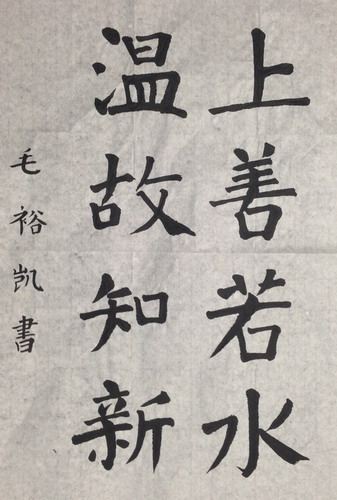 上善若水
温故知新
毛裕凯書